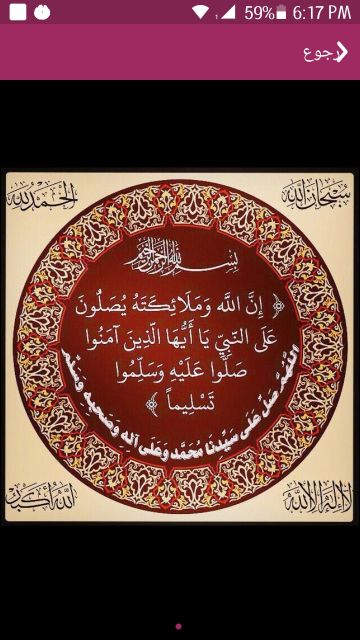 59% 6:17 PM
رجوع
سبحان الله
الحمد لله
بسم الله الرحمن الرحيم
﴿ إِنَّ اللَّه وَمَلَائِكَتَهُ يُصَلُّونَ
عَلَى النَّبِيِّ يَا أَيُّهَا الَّذِينَ آمَنُوا
صَلُّوا عَلَيْهِ وَسَلِّمُوا
تَسْلِيماً ﴾
اللهم صل على سيدنا محمد وعلى آله وصحبه وسلم
لا إله إلا الله
الله أكبر